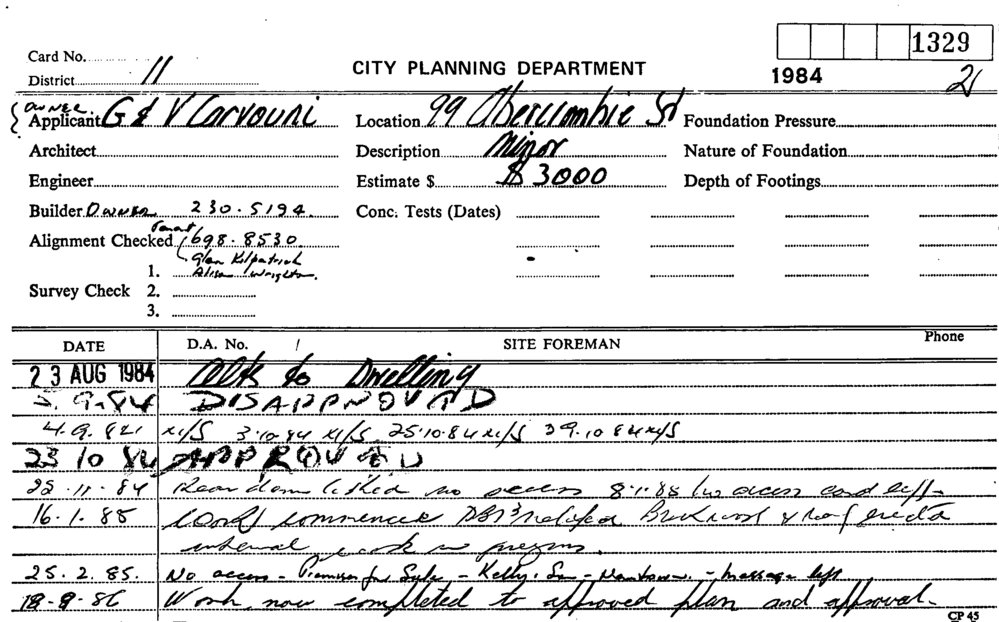 1329
Card No.
District 11
CITY PLANNING DEPARTMENT
1984
21
OWNER
Applicant G & V Carvouni
Location 99 Abercrombie St
Foundation Pressure
Architect
Description Minor
Nature of Foundation
Engineer
Estimate $ $ 3000
Depth of Footings
Builder Owner 230.5194.
Conc. Tests (Dates)
Tenant
Alignment Checked 698-8530
Glen Kilpatrick
1. Alison Wrighton
Survey Check 2.
3.
DATE D.A. No. SITE FOREMAN Phone
23 AUG 1984 Alts to Dwelling
3.9.84 DISAPPROVED
4.9.84 N/S 3.10.84 N/S 25.10.84 N/S 29.10.84 N/S
23 10 84 APPROVED
22.11.84 no access 8.1.85 no access card left
16.1.85 Work commenced Brickwork & roof erected
internal work in progress.
25.2.85. No access - Premises for Sale - Kelly & Son - Newtown - message left
18-8-86 Work now completed to approved plan and approval.
CP 45